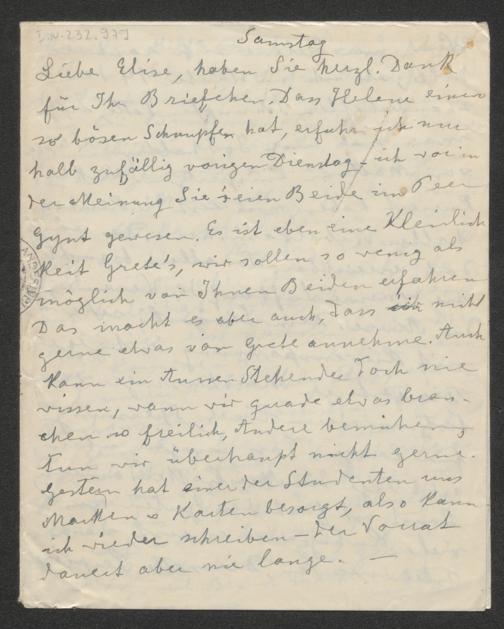 I.N. 232.979
Samstag
Liebe Elise, haben Sie herzl. Dank
für Ihr Briefchen. Dass Helene einen
so bösen Schnupfen hat, erfuhr ich nur
halb zufällig vorigen Dienstag – ich war in
der Meinung Sie seien Beide im Peer
Gynt gewesen. Es ist eben eine Kleinlich
keit Grete's, wir sollen so wenig als
möglich von Ihnen Beiden erfahren
Das macht es aber auch, dass ich nicht
gerne etwas von Grete annehme. Auch
kann ein Aussenstehender doch nie
wissen, wann wir gerade etwas brau-
chen so freilich, Andere bemühen,
tun wir überhaupt nicht gerne.
Gestern hat einer der Studenten uns
Marken u Karten besorgt, also kann
ich wieder schreiben – der Vorrat
dauert aber nie lange. –